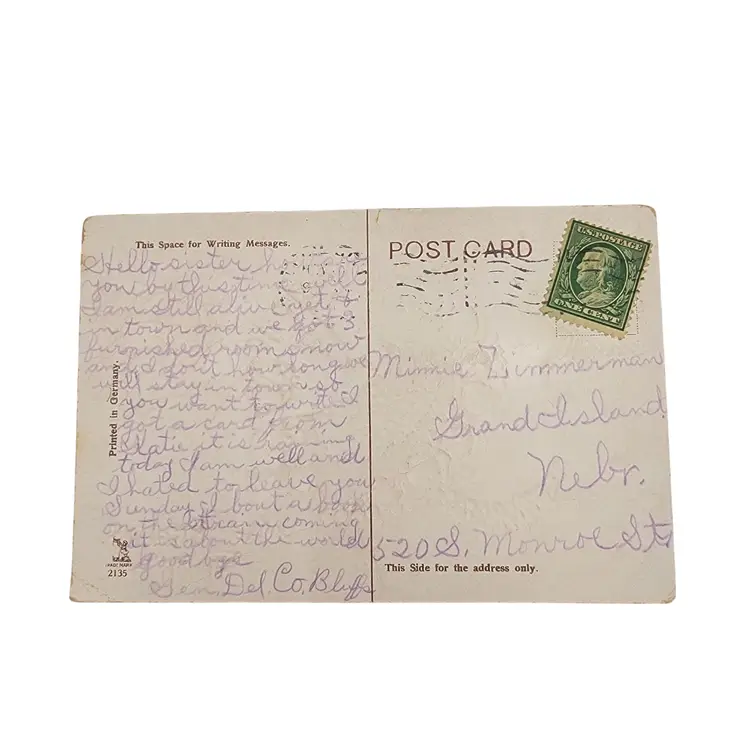 This Space for Writing Messages.
Hello sister how are
you by this time well
I am still alive yet &
in town and we got 3
furnished rooms now
and I dont how long we
will stay in town so
you want to write I
got a card from
Katie it is raining
today I am well and
I hated to leave you
Sunday I bout a book
on the train coming
it is about the world
goodbye
Gen. Del. Co. Bluffs
Printed in Germany.
TRADE MARK
2135
POST CARD
U.S. POSTAGE
ONE CENT
Minnie Zimmerman
Grand Island
Nebr.
520 S. Monroe St
This Side for the address only.